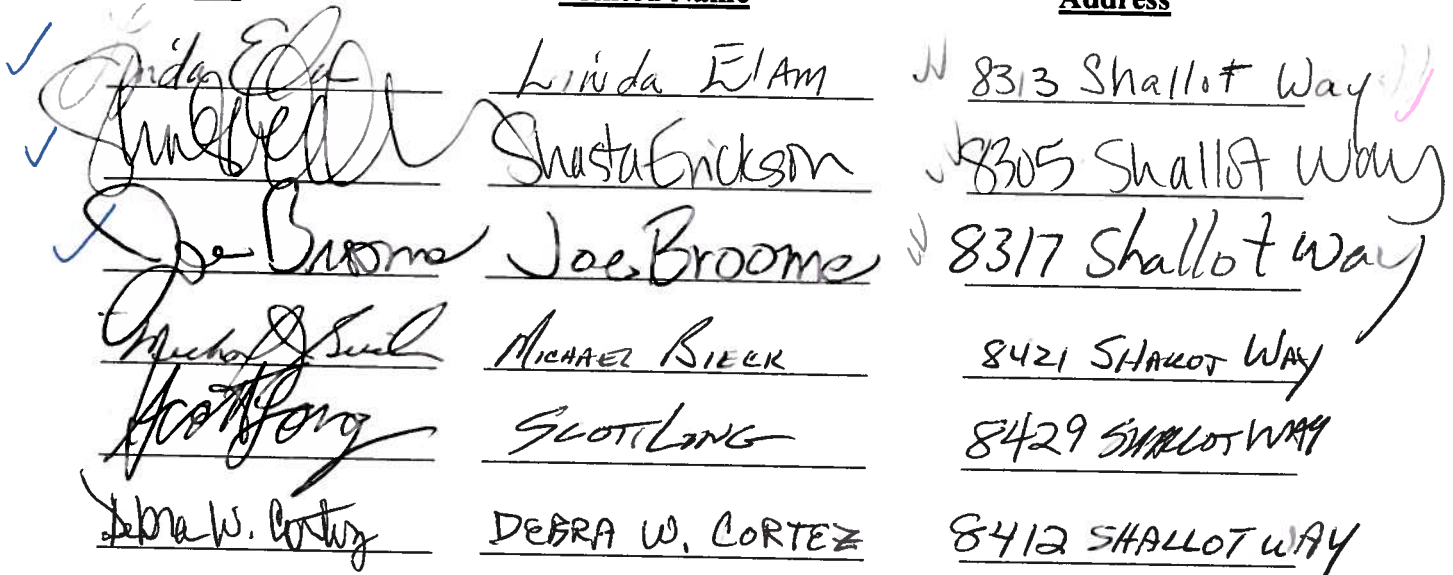 Address
Linda Elam Linda Elam 8313 Shallot Way
Shasta Erickson 8305 Shallot Way
Joe Broome Joe Broome 8317 Shallot Way
MICHAEL BIECK 8421 SHALLOT WAY
Scott Long SCOTT LONG 8429 SHALLOT WAY
Debra W. Cortez DEBRA W. CORTEZ 8412 SHALLOT WAY